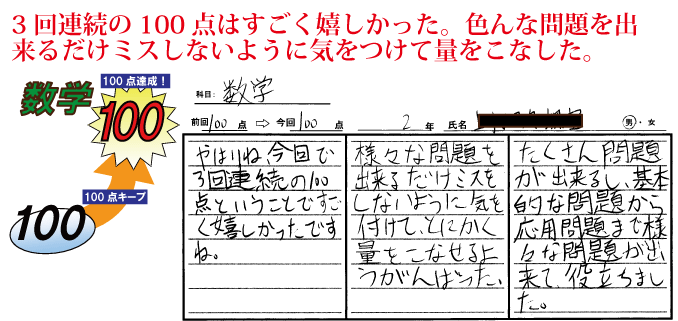 3回連続の100点はすごく嬉しかった。色んな問題を出
来るだけミスしないように気をつけて量をこなした。
数学
100点達成！
100
100点キープ
100
科目: 数学
前回 100 点 ⇨ 今回 100 点 2 年 氏名 男・女
やはりね、今回で
3回連続の100
点ということですご
く嬉しかったです
ね。
様々な問題を
出来るだけミスを
しないように気を
付けて、とにかく
量をこなせるよ
うがんばった、
たくさん問題
が出来るし、基本
的な問題から
応用問題まで様
々な問題が出
来て、役立ちまし
た。